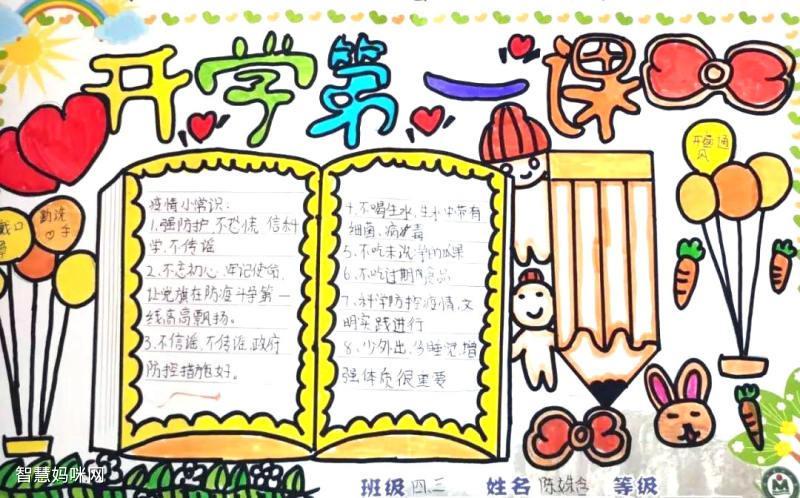 开学第一课
开窗通
风
戴口
勤洗
手
疫情小常识:
1.强防护,不恐慌,信科
学,不传谣
2.不忘初心,牢记使命,
让党旗在防疫斗学第一
线高高飘扬。
3.不信谣,不传谣,政府
防控措施好。
4.不喝生水,生水中带有
细菌、病毒
5.不吃未洗净的瓜果
6.不吃过期的食品
7.科学防控疫情,文
明实践进行
8.少外出,多睡觉,增
强体质很重要
智慧妈咪网
班级 四.三 姓名 陈姝含 等级